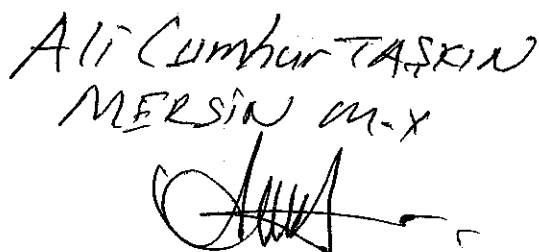 Ali Cumhur TAŞKIN
MERSİN M.X